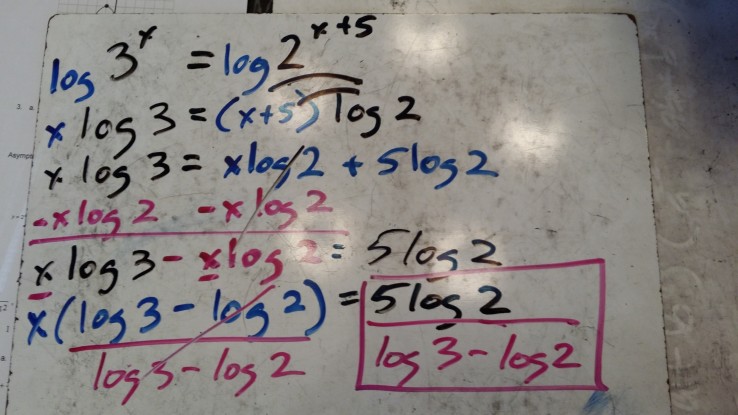 log 3^x = log 2^x+5
x log 3 = (x+5) log 2
x log 3 = x log 2 + 5 log 2
-x log 2 -x log 2
x log 3 - x log 2 = 5 log 2
x (log 3 - log 2) = 5 log 2
log 3 - log 2 log 3 - log 2
3. a
Asymp